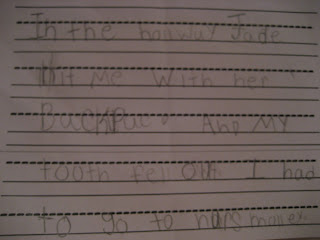 In the hallway Jade
Hit Me With her
Backpac And My
tooth fell Out. I had
to go to nurs